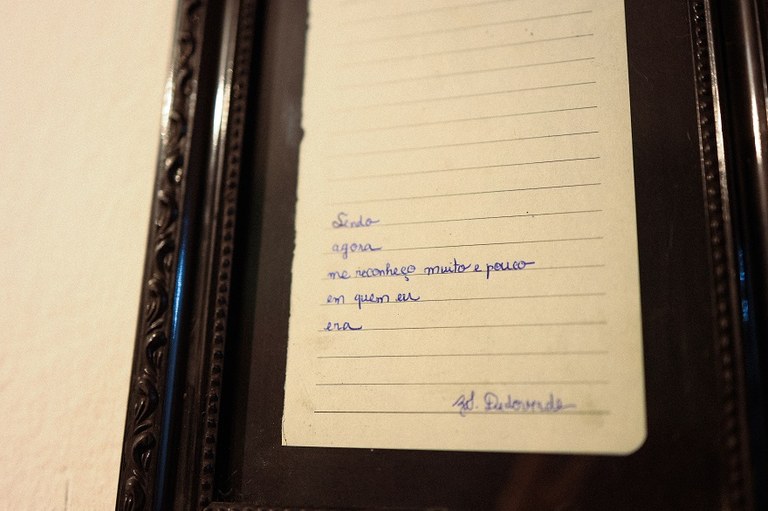 Sendo
agora
me reconheço muito e pouco
em quem eu
era